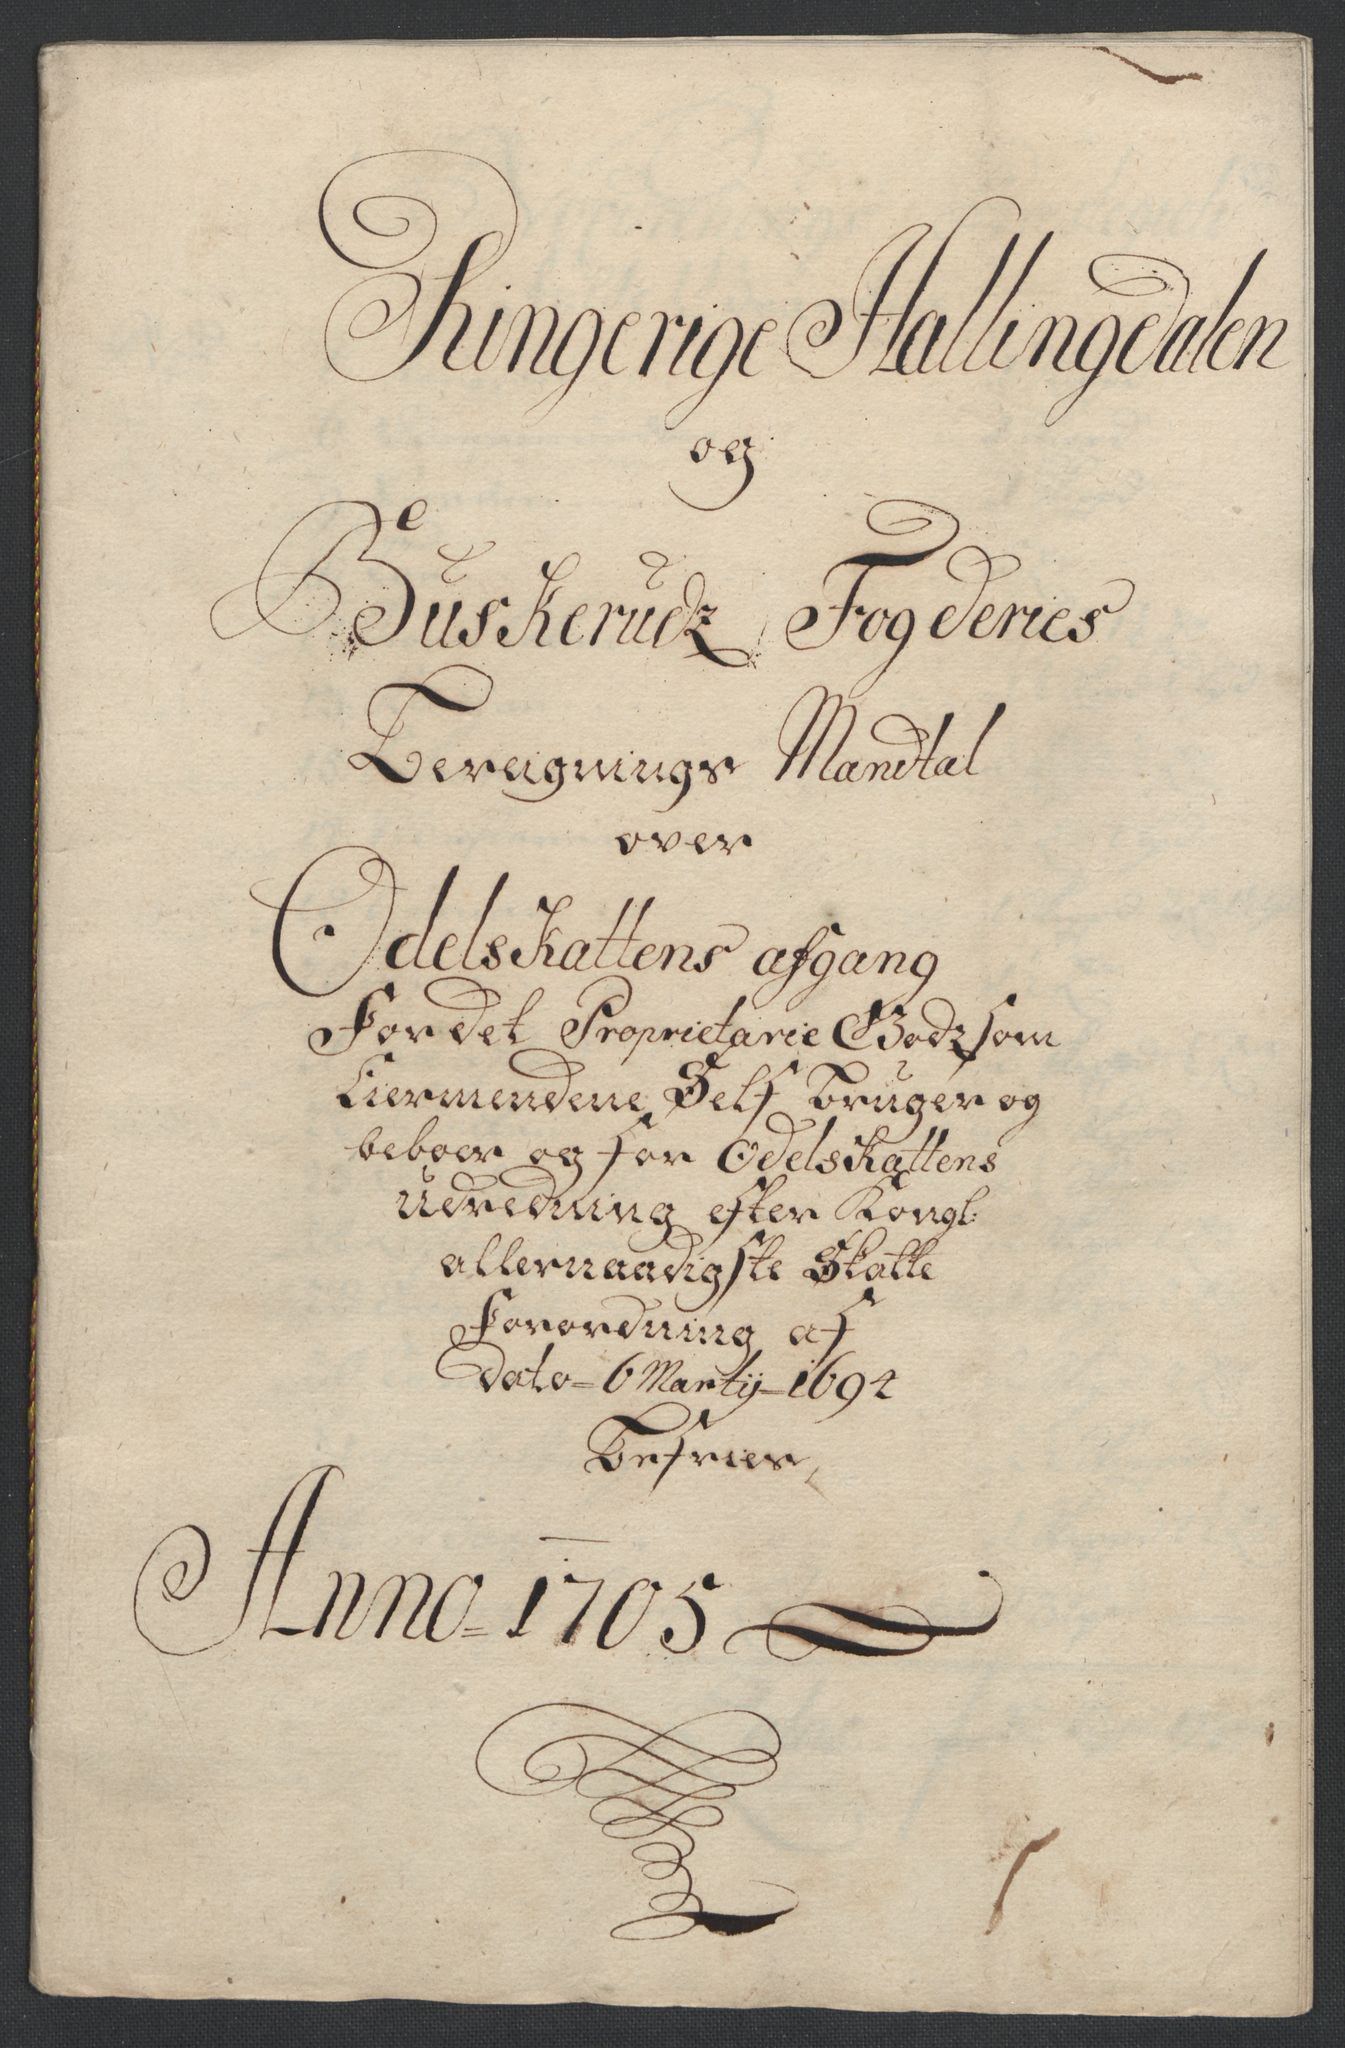 Ringerige Hallingdalen
og
Buskerudz Fogderies
Beregnings Mandtal
over
Odelskattens afgang
For det Proprietarie Godz som
Eiermendene Self bruger og
beboer og for Odelskattens
Udredning efter Kongl:
allernaadigste Skatte
Forordning af
dato 6 Martij 1694
befries
Anno 1705